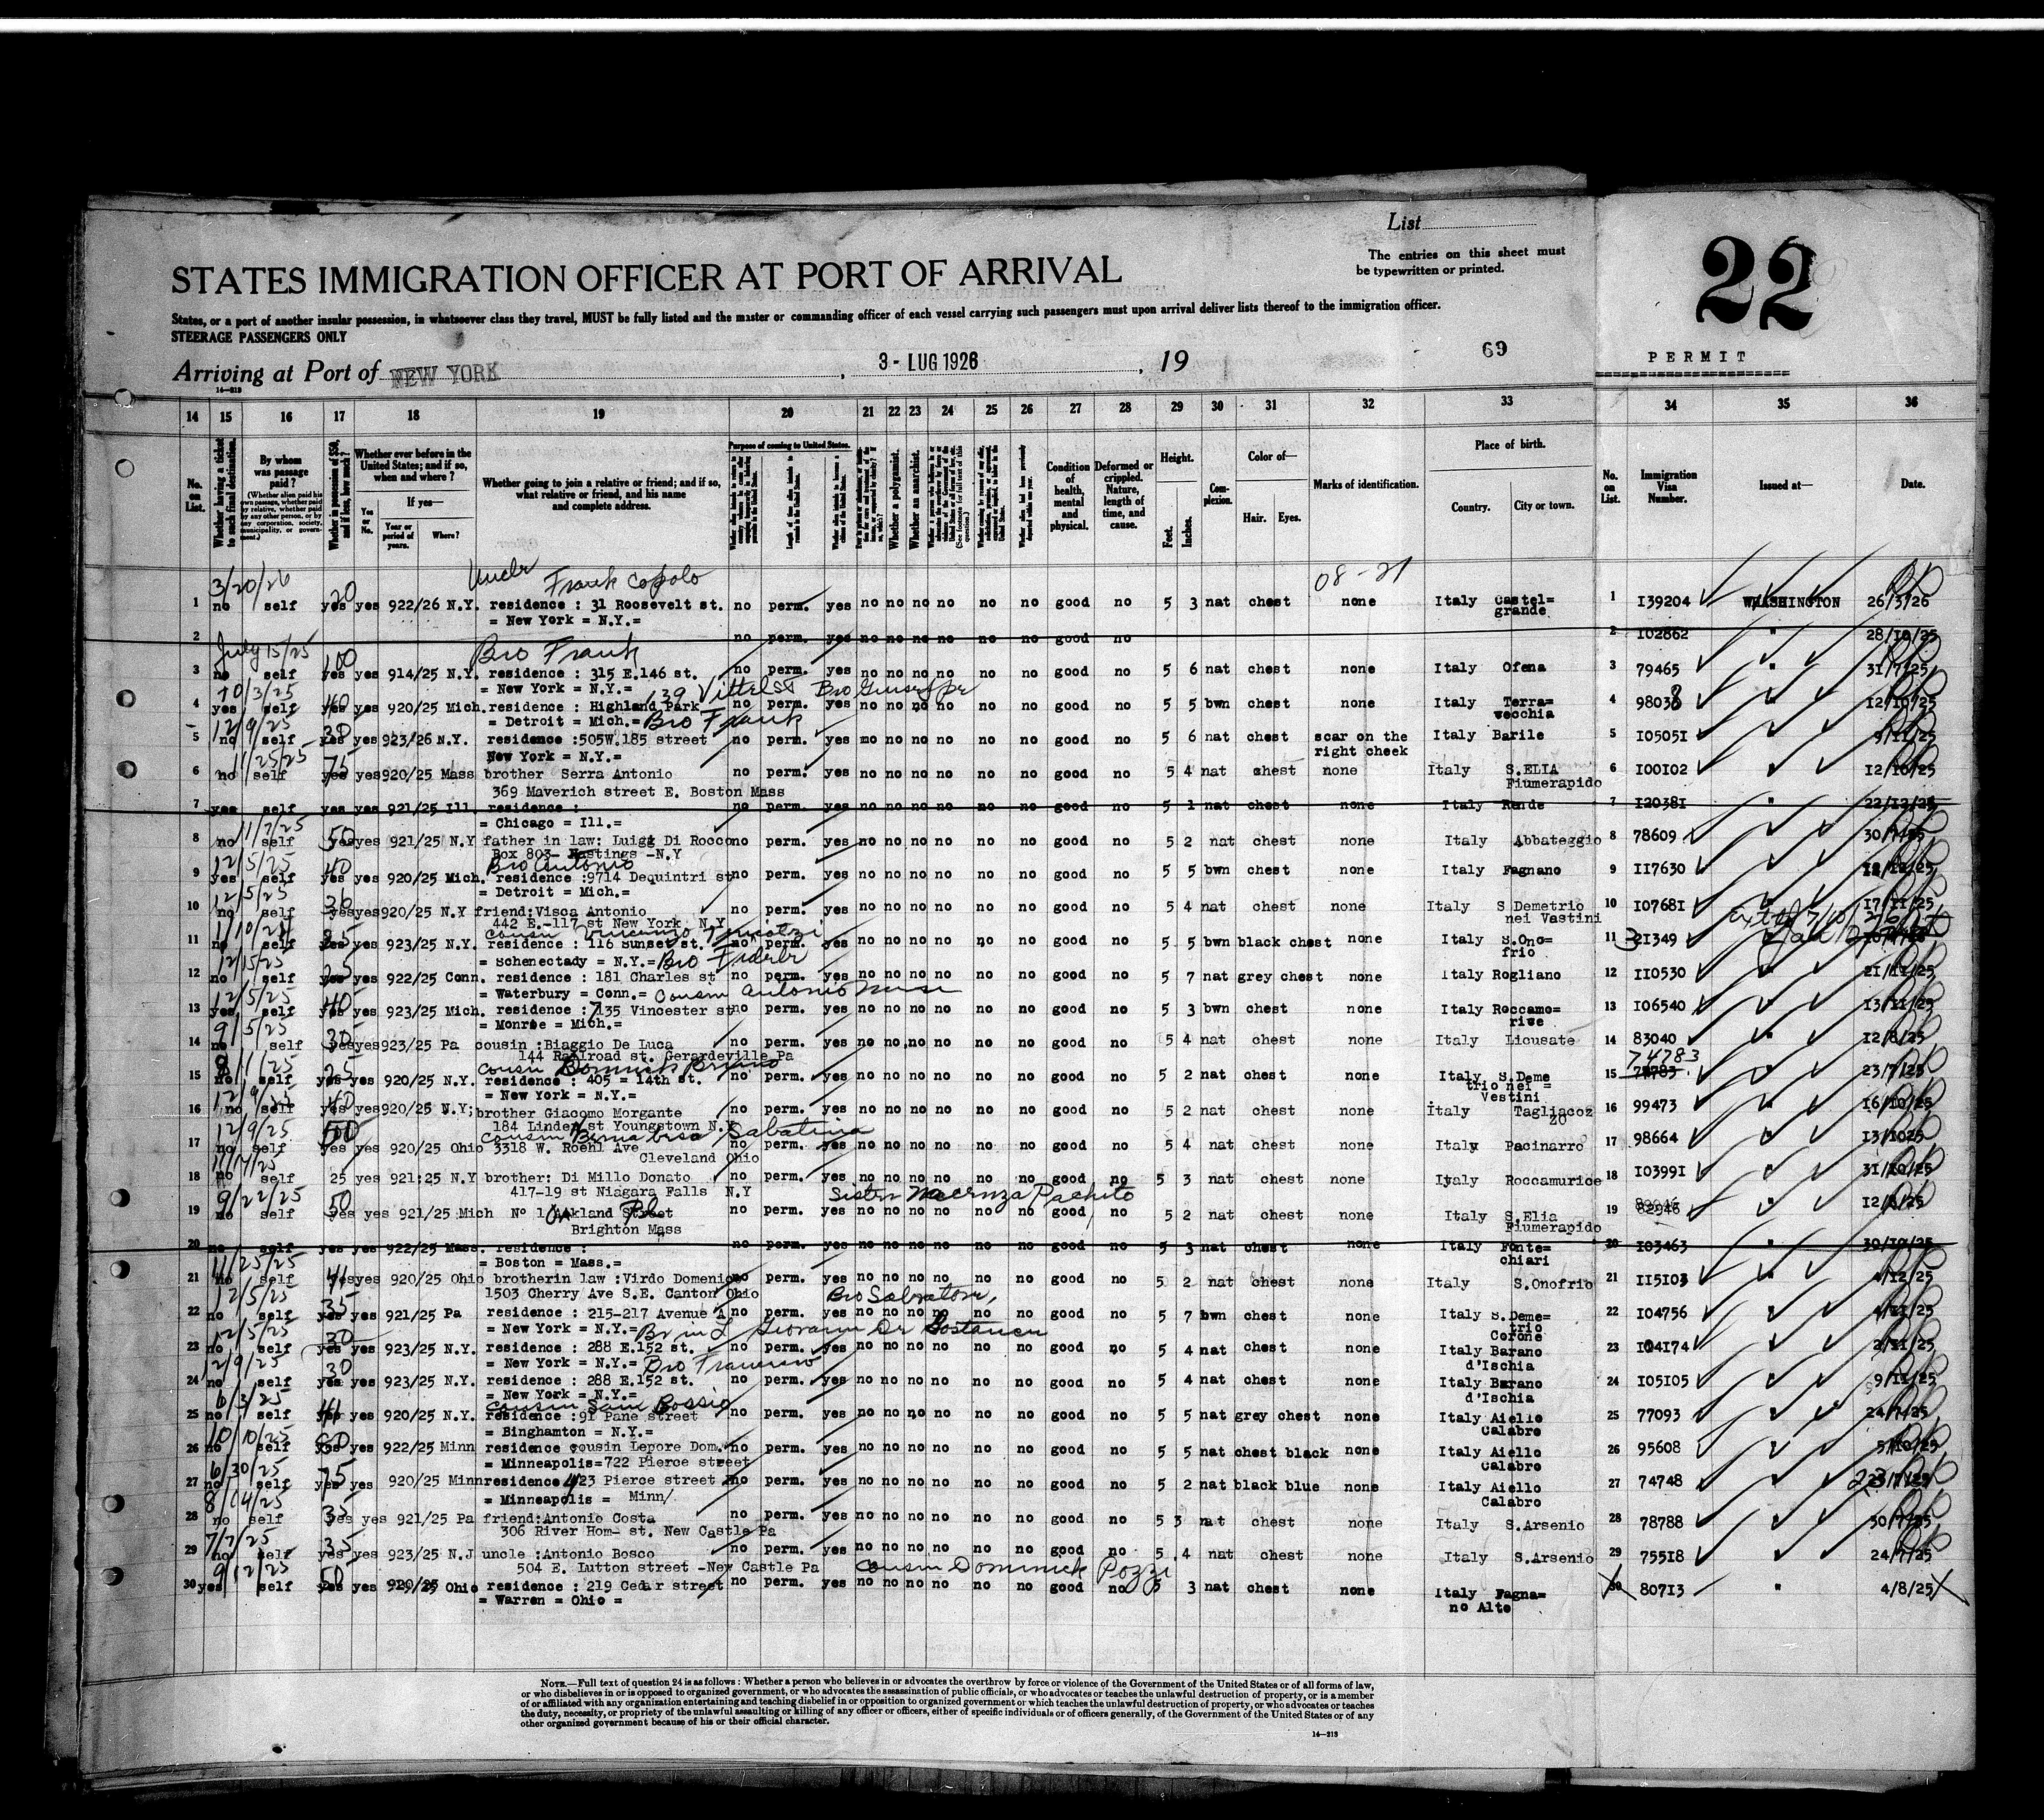 List
The entries on this sheet must
be typewritten or printed.
22
STATES IMMIGRATION OFFICER AT PORT OF ARRIVAL
States, or a port of another insular possession, in whatsoever class they travel, MUST be fully listed and the master or commanding officer of each vessel carrying such passengers must upon arrival deliver lists thereof to the immigration officer.
STEERAGE PASSENGERS ONLY
Arriving at Port of NEW YORK , 3 - LUG 1926 , 19 69
PERMIT
14—213
14 15 16 17 18 19 20 21 22 23 24 25 26 27 28 29 30 31 32 33 34 35 36
No. on List.
Whether having a ticket to such final destination.
By whom was passage paid?
(Whether alien paid his own passage, whether paid by relative, whether paid by any other person, or by any corporation, society, municipality, or government.)
Whether in possession of $50, and if less, how much?
Whether ever before in the United States; and if so, when and where?
If yes—
Yes or No.
Year or period of years.
Where?
Whether going to join a relative or friend; and if so, what relative or friend, and his name and complete address.
Purpose of coming to United States.
Whether a polygamist.
Whether an anarchist.
Condition of health, mental and physical.
Deformed or crippled. Nature, length of time, and cause.
Height.
Feet.
Inches.
Complexion.
Color of—
Hair.
Eyes.
Marks of identification.
Place of birth.
Country.
City or town.
No. on List.
Immigration Visa Number.
Issued at—
Date.
3/20/26 20 Uncle Frank Copolo 08-21
1 no self yes yes 922/26 N.Y. residence : 31 Roosevelt st. no perm. yes no no no no no no good no 5 3 nat chest none Italy Castel= 1 I39204 WASHINGTON 26/3/26
= New York = N.Y.= grande
2 no perm. yes no no no no no no good no 2 I02862 " 28/10/25
July 15/25 100 Bro Frank
3 no self yes yes 914/25 N.Y. residence : 315 E.146 st. no perm. yes no no no no no no good no 5 6 nat chest none Italy Ofena 3 79465 " 31/7/25
= New York = N.Y.=
10/3/25 Bro Giuseppe
4 yes self yes yes 920/25 Mich. residence : Highland Park no perm. yes no no no no no no good no 5 5 bwn chest none Italy Terra= 4 98038 " I2/10/25
= Detroit = Mich.= Bro Frank vecchia
12/9/25 30
5 no self yes yes 923/26 N.Y. residence :505W.185 street no perm. yes mo no no no no no good no 5 6 nat chest scar on the Italy Barile 5 I05051 " 9/11/25
New York = N.Y.= right cheek
11/25/25 75
6 no self yes yes 920/25 Mass brother Serra Antonio no perm. yes no no no no no no good no 5 4 nat chest none Italy S.ELIA 6 I00I02 " I2/10/25
369 Maverich street E. Boston Mass Fiumerapido
7 yes self yes yes 921/25 Ill. residence : no perm. yes no no no no no no good no 5 1 nat chest none Italy Rende 7 I2038I " 22/12/25
= Chicago = Ill.=
11/7/25 50
8 no self yes yes 921/25 N.Y father in law: Luigi Di Rocco no perm. yes no no no no no no good no 5 2 nat chest none Italy Abbateggio 8 78609 " 30/7/25
Box 803- Hastings -N.Y
12/5/25 40 Bro Antonio
9 yes self yes yes 920/25 Mich. residence :9714 Dequintri st no perm. yes no no no no no no good no 5 5 bwn chest none Italy Fagnano 9 II7630 " I2/12/25
= Detroit = Mich.=
12/5/25 30
10 no self yes yes 920/25 N.Y friend:Visca Antonio no perm. yes no no no no no no good no 5 4 nat chest none Italy S Demetrio 10 I0768I " I7/11/25
442 E.-117 st New York N.Y nei Vastini
cousin Vincenzo
11 no self yes yes 923/25 N.Y. residence : 116 Sunset st. no perm. yes no no no no no no good no 5 5 bwn black chest none Italy S.Ono= 11 2I349 "
= Schenectady = N.Y.= Bro frio
12/15/25 25
12 no self yes yes 922/25 Conn. residence : 181 Charles st no perm. yes no no no no no no good no 5 7 nat grey chest none Italy Rogliano 12 II0530 " 2I/11/25
= Waterbury = Conn.= Cousin Antonio
12/5/25 40
13 yes self yes yes 923/25 Mich. residence :7135 Vincester st no perm. yes no no no no no no good no 5 3 bwn chest none Italy Roccamo= 13 I06540 " I3/11/25
= Monroe = Mich.= rice
9/5/25 30
14 no self yes yes 923/25 Pa cousin :Biaggio De Luca no perm. yes no no no no no no good no 5 4 nat chest none Italy Licusate 14 83040 " I2/8/25
144 Railroad st. Gerardeville Pa 74783
25 Cousin Dominick Bruno
15 no self yes yes 920/25 N.Y. residence : 405 = 14th st. no perm. yes no no no no no no good no 5 2 nat chest none Italy S.Deme 15 " 23/7/25
= New York = N.Y.= trio nei = Vestini
12/9/25 40
16 no self yes yes 920/25 N.Y; brother Giacomo Morgante no perm. yes no no no no no no good no 5 2 nat chest none Italy Tagliacoz 16 99473 " I6/10/25
184 Linden st Youngstown N.Y zo
12/9/25 50 Cousin Sabatina
17 no self yes yes 920/25 Ohio 3318 W. Roehl Ave no perm. yes no no no no no no good no 5 4 nat chest none Italy Pacinarro 17 98664 " I3/1025
Cleveland Ohio
18 no self 25 yes 921:25 N.Y brother: Di Millo Donato no perm. yes no no no no no no good no 5 3 nat chest none Italy Roccamurice 18 I0399I " 3I/10/25
417-19 st Niagara Falls N.Y Sister
9/22/25 50
19 no self yes yes 921/25 Mich Nº 1 Oakland Street Pl no perm. yes no no no no no no good no 5 2 nat chest none Italy S.Elia 19 82946 " I2/8/25
Brighton Mass Fiumerapido
20 no self yes yes 922/25 Mass. residence : no perm. yes no no no no no no good no 5 3 nat chest none Italy Fonte= 20 I03463 " 30/10/25
= Boston = Mass.= chiari
11/25/25 41
21 no self yes yes 920/25 Ohio brotherin law :Virdo Domenico no perm. yes no no no no no no good no 5 2 nat chest none Italy S.Onofrio 21 II5I03 " 4/12/25
1503 Cherry Ave S.E. Canton Ohio Bro Salvatore
12/5/25 35
22 no self yes yes 921/25 Pa residence : 215-217 Avenue A no perm. yes no no no no no no good no 5 7 bwn chest none Italy S.Deme= 22 I04756 " 4/11/25
= New York = N.Y.= Br in L Giovanni trio Corone
12/5/25 30
23 no self yes yes 923/25 N.Y. residence : 288 E.152 st. no perm. yes no no no no no no good no 5 4 nat chest none Italy Barano 23 I04I74 " 2/11/25
= New York = N.Y.= Bro Francesco d'Ischia
12/9/25 30
24 no self yes yes 923/25 N.Y. residence : 288 E.152 st. no perm. yes no no no no no no good no 5 4 nat chest none Italy Barano 24 I05I05 " 9/11/25
= New York = N.Y.= d'Ischia
6/3/25 41 Cousin Sam Bossio
25 no self yes yes 920/25 N.Y. residence :91 Pane street no perm. yes no no no no no no good no 5 5 nat grey chest none Italy Aiello 25 77093 " 24/7/25
= Binghamton = N.Y.= Calabro
10/10/25
26 no self yes yes 922/25 Minn residence cousin Lepore Dom. no perm. yes no no no no no no good no 5 5 nat chest black none Italy Aiello 26 95608 " 5/10/25
= Minneapolis=722 Pierce street Calabro
6/30/25 75
27 no self yes yes 920/25 Minn residence 423 Pierce street no perm. yes no no no no no no good no 5 2 nat black blue none Italy Aiello 27 74748 " 23/7/25
= Minneapolis = Minn/ Calabro
8/14/25 35
28 no self yes yes 921/25 Pa friend:Antonio Costa no perm. yes no no no no no no good no 5 3 nat chest none Italy S.Arsenio 28 78788 " 30/7/25
306 River Hom- st. New Castle Pa
7/7/25 35
29 no self yes yes 923/25 N.J uncle :Antonio Bosco no perm. yes no no no no no no good no 5 4 nat chest none Italy S.Arsenio 29 755I8 " 24/7/25
504 E. Lutton street -New Castle Pa Cousin Dominick Pozzi
9/2/25 50
30 yes self yes yes 920/25 Ohio residence : 219 Cedar street no perm. yes no no no no no no good no 5 3 nat chest none Italy Fagna= 30 807I3 " 4/8/25
= Warren = Ohio = no Alto
NOTE.—Full text of question 24 is as follows: Whether a person who believes in or advocates the overthrow by force or violence of the Government of the United States or of all forms of law,
or who disbelieves in or is opposed to organized government, or who advocates the assassination of public officials, or who advocates or teaches the unlawful destruction of property, or is a member
of or affiliated with any organization entertaining and teaching disbelief in or opposition to organized government or which teaches the unlawful destruction of property, or who advocates or teaches
the duty, necessity, or propriety of the unlawful assaulting or killing of any officer or officers, either of specific individuals or of officers generally, of the Government of the United States or of any
other organized government because of his or their official character.
14—213